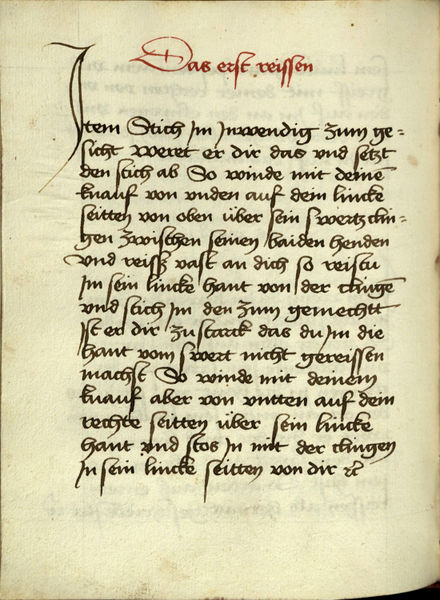 Das erst reissen
Item Stich Im Inwendig zum ge=
sicht weret er dir das vnd setzt
den stich ab So winde mit deinē
knauf von vnden auf dein lincke
seitten von oben über sein swertz clin=
gen zwischen seinen baiden henden
vnd reiss vast an dich so reistu
Im sein lincke hant von der clingē
vnd stich Im den zum gemechtt
Ist er dir zu starck das du Im die
hant vom swert nicht gereissen
machst So winde mit deinem
knauf aber von vntten auf dein
rechte seitten über sein lincke
hant vnd stos In mit der clingen
In sein lincke seitten von dir ꝛc